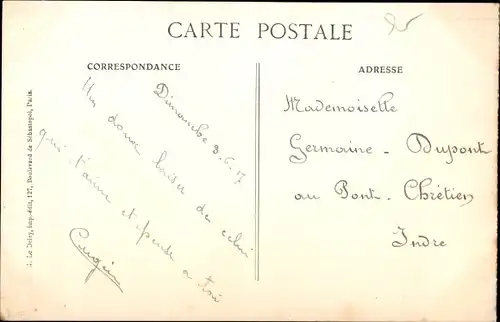 CARTE POSTALE
CORRESPONDANCE
Dimanche 3.6.17
Un doux baiser de celui
qui t'aime et pense a toi
ADRESSE
Mademoiselle
Germaine - Dupont
au Pont - Chrétien
Indre
J. Le Deley, Imp.-Edit, 127, Boulevard de Sébastopol, Paris.